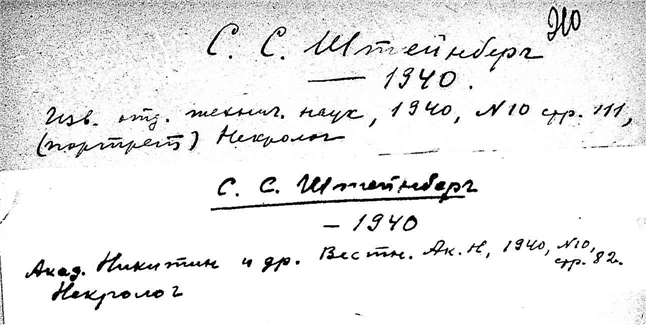 210
С. С. Штейнберг
— 1940.
Изв. отд. технич. наук, 1940, N10 стр. 111,
(портрет) Некролог
С. С. Штейнберг
– 1940
Акад. Никитин и др. Вестн. Ак. Н, 1940, N10,
стр. 82.
Некролог